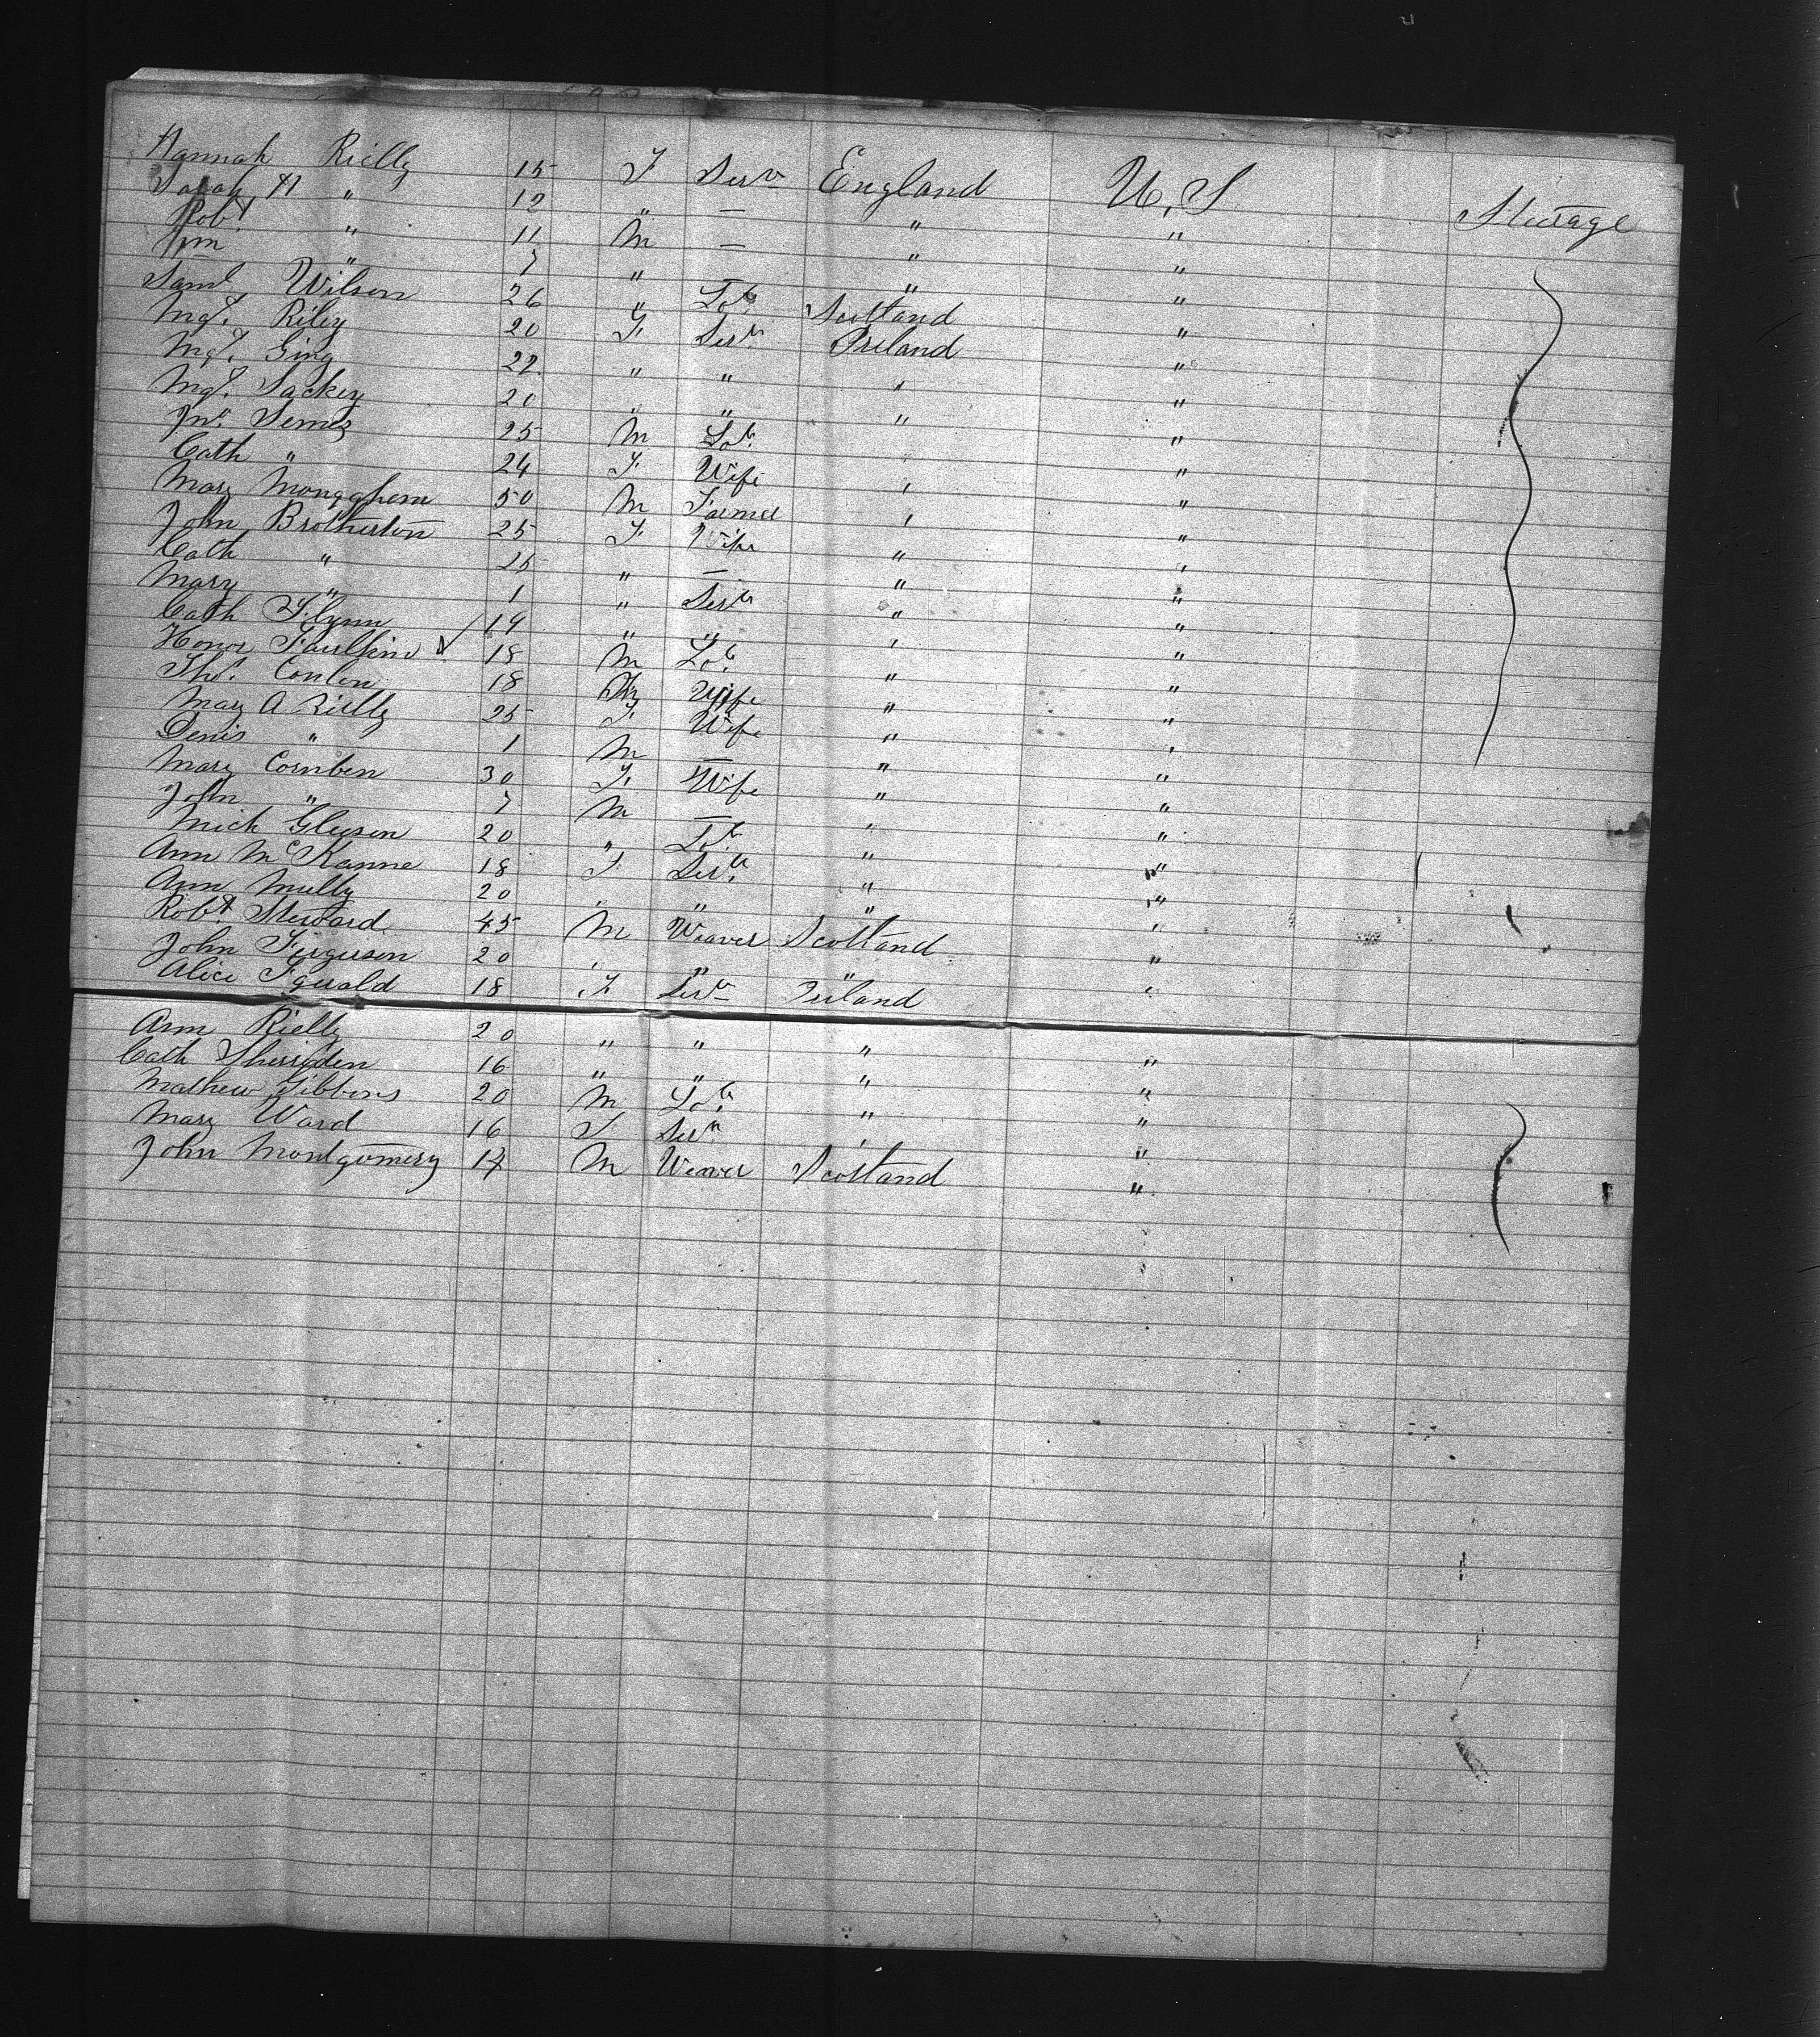 Hannah Rielly 15 F Servt England U,S Steerage
Sarah A " 12 " — " "
Robt " 11 M — " "
Wm " 7 " — " "
Saml Wilson 26 " Lab. Scotland "
Mgt. Riley 20 F. Servt Ireland "
Mgt. Ging 22 " " " "
Mgt. Lackey 20 " " " "
Jno. 25 M Lab. " "
Cath " 24 F Wife " "
Mary 50 M Farmer " "
John Brotherton 25 F Wife " "
Cath " 25 " — " "
Mary " 1 " Servt " "
Cath Flynn 19 " " " "
Honor 18 M Lab. " "
Thos. Conlon 18 Wife " "
Mary A Rielly 25 F Wife " "
Denis " 1 M — " "
Mary Cornben 30 F. Wife " "
John " 7 M — " "
Mich Gleeson 20 " Lab. " "
Ann McKanne 18 F Servt. " "
Ann Mully 20 " " " "
Robt. Steward 45 M Weaver Scotland "
John Ferguson 20 " " " "
Alice 18 F Servt Ireland "
Ann Rielly 20 " " " "
Cath Sherriden 16 " " " "
Mathew Gibbons 20 M Lab. " "
Mary Ward 16 F Servt " "
John Montgomery M Weaver Scotland "